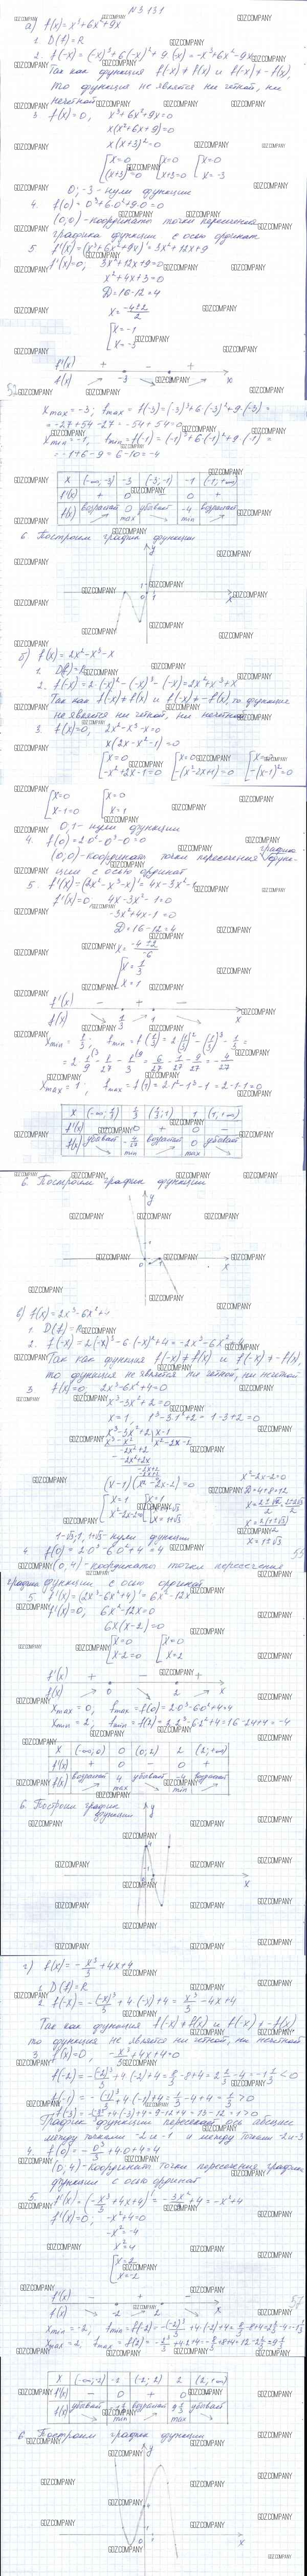 N3 131
а) f(x)=x³+6x²+9x
1. D(f)=R
2. f(-x)=(-x)³+6(-x)²+9(-x)=-x³+6x²-9x
Так как функция f(-x)≠f(x) и f(-x)≠-f(x),
то функция не является ни чётной, ни
нечётной
3. f(x)=0, x³+6x²+9x=0
x(x²+6x+9)=0
x(x+3)²=0
x=0 x=0 x=0
(x+3)²=0 x+3=0 x=-3
0; -3 - нули функции
4. f(0)=0³+6·0²+9·0=0
(0;0) - координаты точки пересечения
графика функции с осью ординат
5. f'(x)=(x³+6x²+9x)'=3x²+12x+9
f'(x)=0; 3x²+12x+9=0
x²+4x+3=0
D=16-12=4
x=(-4±2)/2
x=-1
x=-3
f'(x) + - +
f(x) -3 -1 x
52
x max=-3; f max=f(-3)=(-3)³+6·(-3)²+9·(-3)=
=-27+54-27=-54+54=0
x min=-1, f min=f(-1)=(-1)³+6(-1)²+9(-1)=
=-1+6-9=6-10=-4
x (-∞;-3) -3 (-3;-1) -1 (-1;+∞)
f'(x) + 0 - 0 +
f(x) возрастает 0 max убывает -4 min возрастает
6. Построим график функции
б) f(x)=2x²-x³-x
1. D(f)=R
2. f(-x)=2(-x)²-(-x)³-(-x)=2x²+x³+x
Так как f(-x)≠f(x) и f(-x)≠-f(x), то функция
не является ни чётной, ни нечётной
3. f(x)=0, 2x²-x³-x=0
x(2x-x²-1)=0
x=0 x=0 x=0
-x²+2x-1=0 -(x²-2x+1)=0 -(x-1)²=0
x=0 x=0
x-1=0 x=1
0; 1 - нули функции
4. f(0)=2·0²-0³-0=0
(0;0) - координаты точки пересечения графика функ-
ции с осью ординат
5. f'(x)=(2x²-x³-x)'=4x-3x²-1
f'(x)=0 4x-3x²-1=0
-3x²+4x-1=0
D=16-12=4
x=(-4±2)/-6
x=1/3
x=1
f'(x) - + -
f(x) 1/3 1 x
x min=1/3; f min=f(1/3)=2(1/3)²-(1/3)³-1/3=
=2·1/9-1/27-1/3=6/27-1/27-9/27=-4/27
x max=1, f max=f(1)=2·1²-1³-1=2-1-1=0
x (-∞;1/3) 1/3 (1/3;1) 1 (1;+∞)
f'(x) - 0 + 0 -
f(x) убывает -4/27 min возрастает 0 max убывает
6. Построим график функции
в) f(x)=2x³-6x²+4
1. D(f)=R
2. f(-x)=2(-x)³-6(-x)²+4=-2x³-6x²+4
Так как функция f(-x)≠f(x) и f(-x)≠-f(x),
то функция не является ни чётной, ни нечётной
3. f(x)=0 2x³-6x²+4=0
x³-3x²+2=0
x=1, 1³-3·1²+2=1-3+2=0
x³-3x²+2 x-1
x³-x² x²-2x-2
-2x²+2
-2x²+2x
-2x+2
-2x+2
(x-1)(x²-2x-2)=0
x=1 x=1
x²-2x-2=0 x=1±√3
x²-2x-2=0
D=4+8=12
x=(2±√12)/2=(2±2√3)/2
x=2(1±√3)/2
x=1±√3
1-√3; 1, 1+√3 - нули функции
4. f(0)=2·0³-6·0²+4=4
(0;4) - координаты точки пересечения
графика функции с осью ординат
5. f'(x)=(2x³-6x²+4)'=6x²-12x
f'(x)=0, 6x²-12x=0
6x(x-2)=0
x=0 x=0
x-2=0 x=2
f'(x) + - +
f(x) 0 2 x
x max=0, f max=f(0)=2·0³-6·0²+4=4
x min=2; f min=f(2)=2·2³-6·2²+4=16-24+4=-4
x (-∞;0) 0 (0;2) 2 (2;+∞)
f'(x) + 0 - 0 +
f(x) возрастает 4 max убывает -4 min возрастает
6. Построим график
функции
г) f(x)=-x³/3+4x+4
1. D(f)=R
2. f(-x)=-(-x)³/3+4(-x)+4=x³/3-4x+4
Так как функция f(-x)≠f(x) и f(-x)≠-f(x)
то функция не является ни чётной, ни нечётной
3. f(x)=0, -x³/3+4x+4=0
График функции пересекает ось абсцисс
между точками -2 и -1 и между точками -2 и -3
4. f(0)=-0³/3+4·0+4=4
(0;4) - координаты точки пересечения графика
функции с осью ординат
5. f'(x)=(-x³/3+4x+4)'=-3x²/3+4=-x²+4
f'(x)=0, -x²+4=0
-x²=-4
x²=4
x=2
x=-2
f'(x) - + -
f(x) -2 2 x
x (-∞;-2) -2 (-2;2) 2 (2;+∞)
f'(x) - 0 + 0 -
f(x) убывает min возрастает max убывает
6. Построим график функции
GDZ.COMPANY